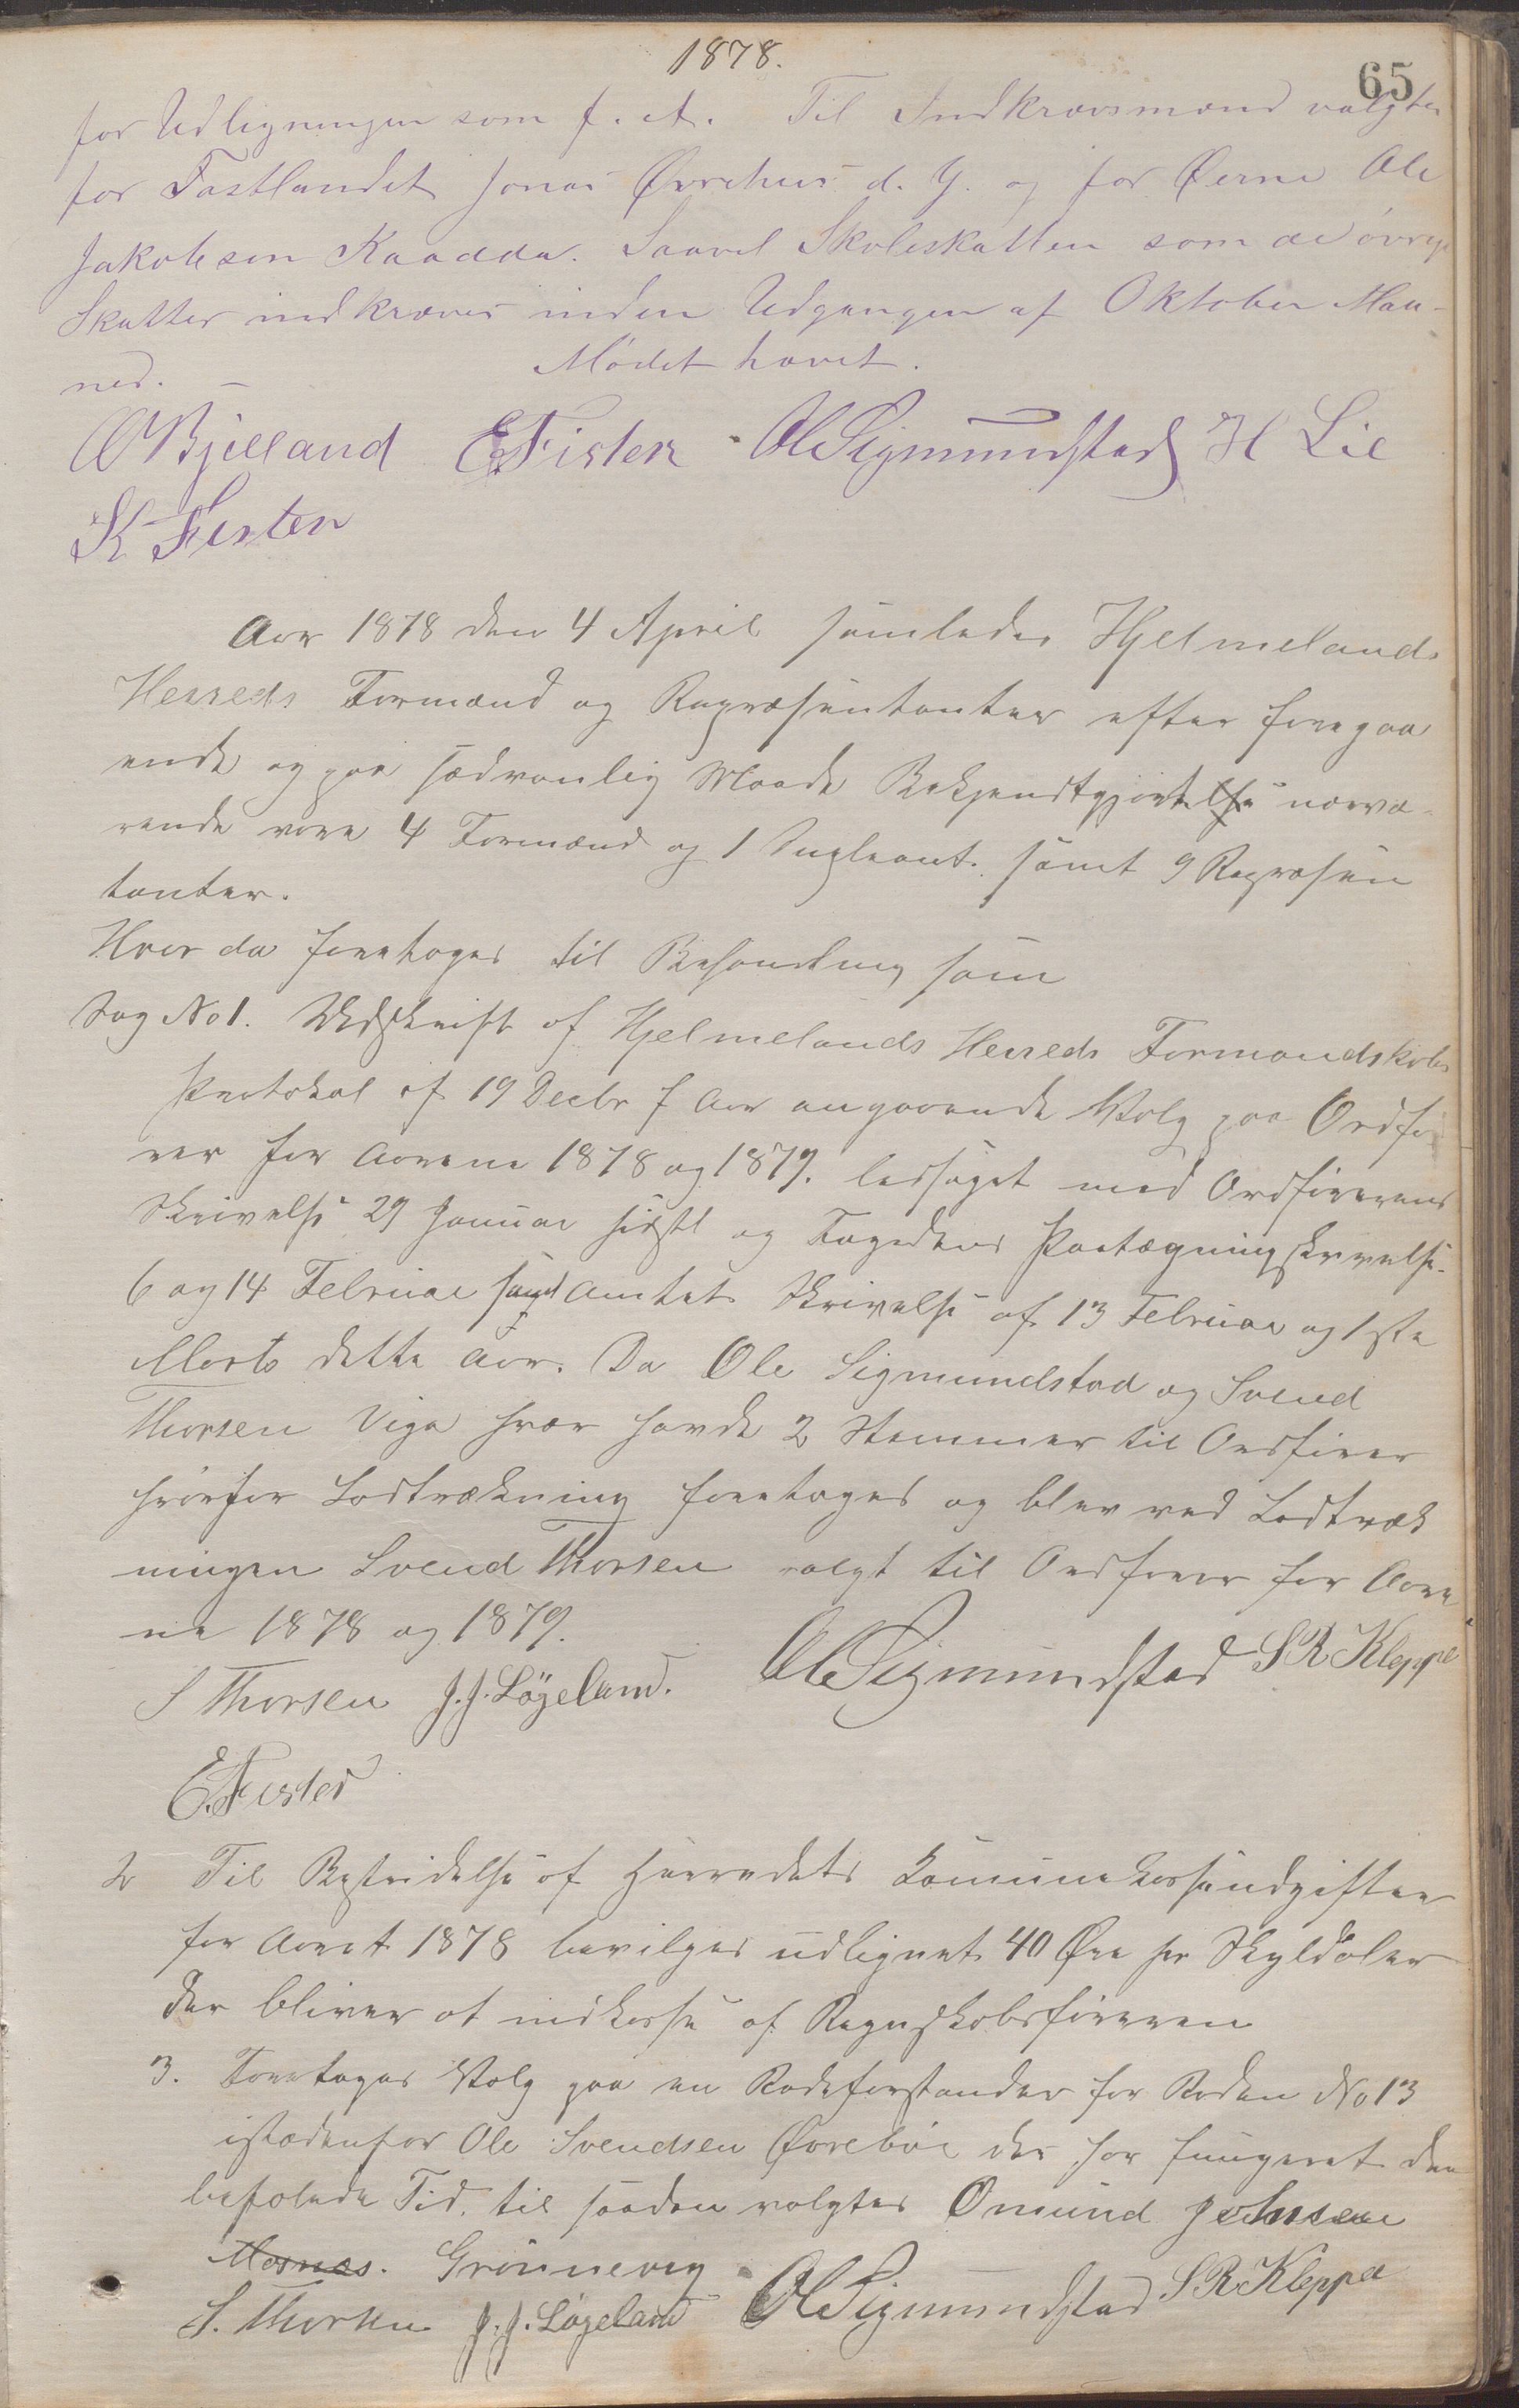 1878.
65
for Udligningen som f. A. Til Indkrævsmænd valgtes
for Fastlandet Jonas Øvrehus d. Y. og for Øerne Ole
Jakobsen Kaadda. Saavel Skoleskatten som de øvrige
Skatter indkræves inden Udgangen af Oktober Maa-
ned. Mødet hævet.
O Bjelland E. Fister Ol Sigmundstad H Lie
K Fister
Aar 1878 den 4 April samledes Hjelmelands
Herreds Formænd og Repræsentanter efter foregaa
ende og paa sædvanlig Maade Bekjendtgjørelse nærvæ-
rende vare 4 Formænd og 1 Supleant. samt 9 Repræsen
tanter.
Hvor da foretoges til Behandling som
Sag No 1. Udskrift af Hjelmelands Herreds Formandskabs
Protokol af 19 Decbr f Aar angaaende Valg paa Ordfø
rer for Aarene 1878 og 1879. ledsaget med Ordførerens
Skrivelse 29 Januar sidstl og Fogedens Paategningskrivelse
6 og 14 Februar samt Amtets Skrivelse af 13 Februar og 1ste
Marts dette Aar. Da Ole Sigmundstad og Svend
Thorsen Viga hver havde 2 Stemmer til Ordfører
hvorfor Lodtrækning foretoges og blev ved Lodtræk
ningen Svend Thorsen valgt til Ordfører for Aare
ne 1878 og 1879.
S Thorsen J. J. Løgeland. Ol Sigmundstad S R Kleppe
E. Fister
2 Til Bestridelse af Herredets Kommunekasseudgifter
for Aaret 1878 bevilges udlignet 40 Øre pr Skylddaler
der bliver at indkasse af Regnskabsføreren
3. Foretoges Valg paa en Rodeforstander for Roden No 13
istedenfor Ole Svendsen Øvrebøe der har fungeret den
befalede Tid. til saadan valgtes Omund Johnsen
Mosnæs. Grønnevig
S. Thorsen J. J. Løgeland Ol Sigmundstad S R Kleppe